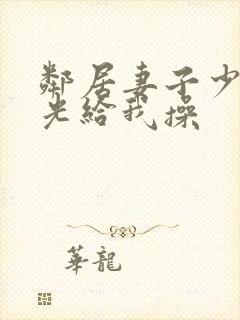 鄰居妻子少
光給我操
華龍